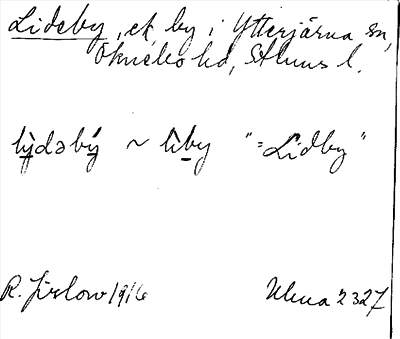 Lideby, ek. by i Ytterjärna sn,
Öknebo hd, Sthms l.
lỳdəbý ~ lìby "=Lidby"
R. Jirlow 1916 Ulma 2327